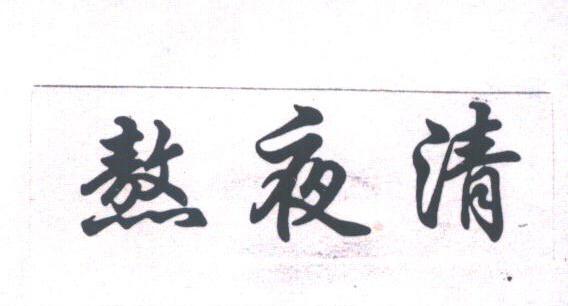 熬夜清